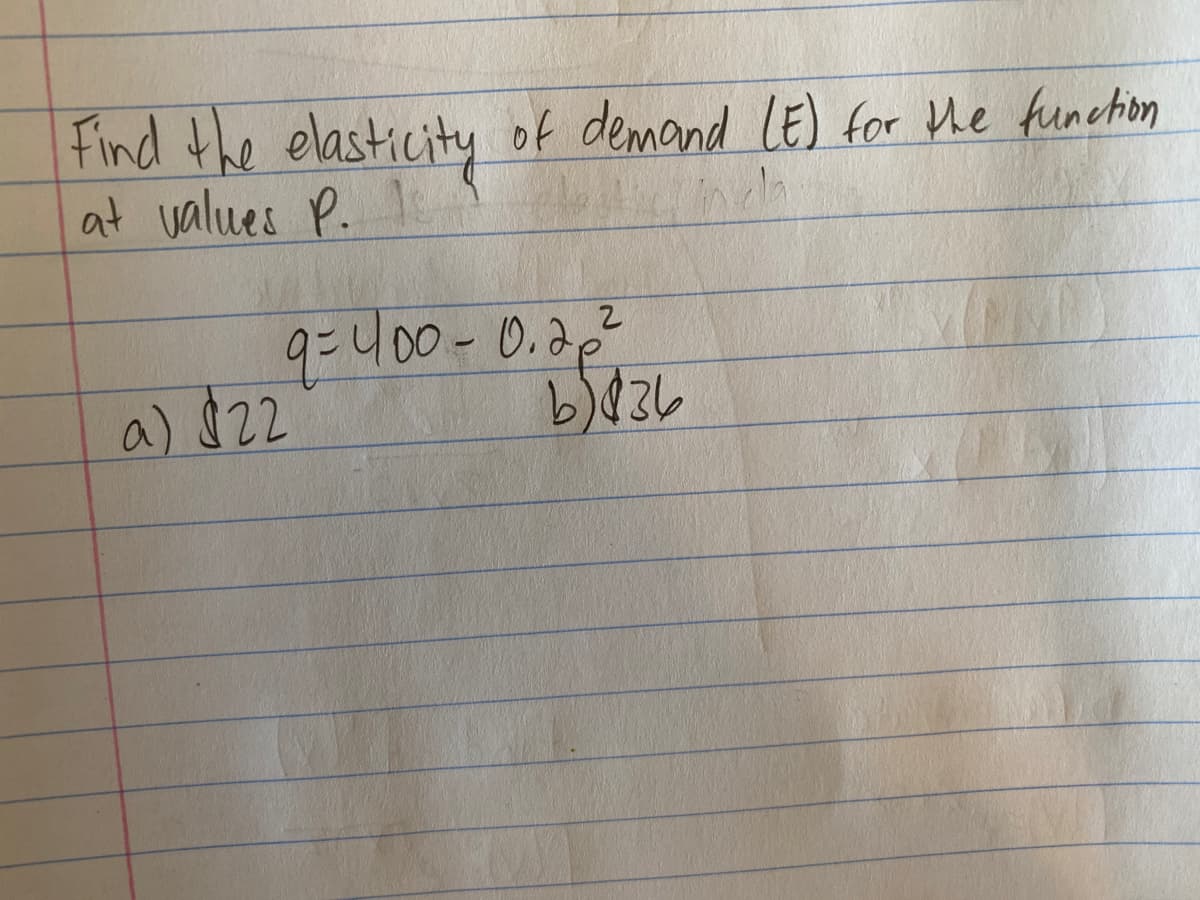 Find the elasticity of demand (E) for the function
at values P.
q=400-0.2p²
a) $22 b) $36